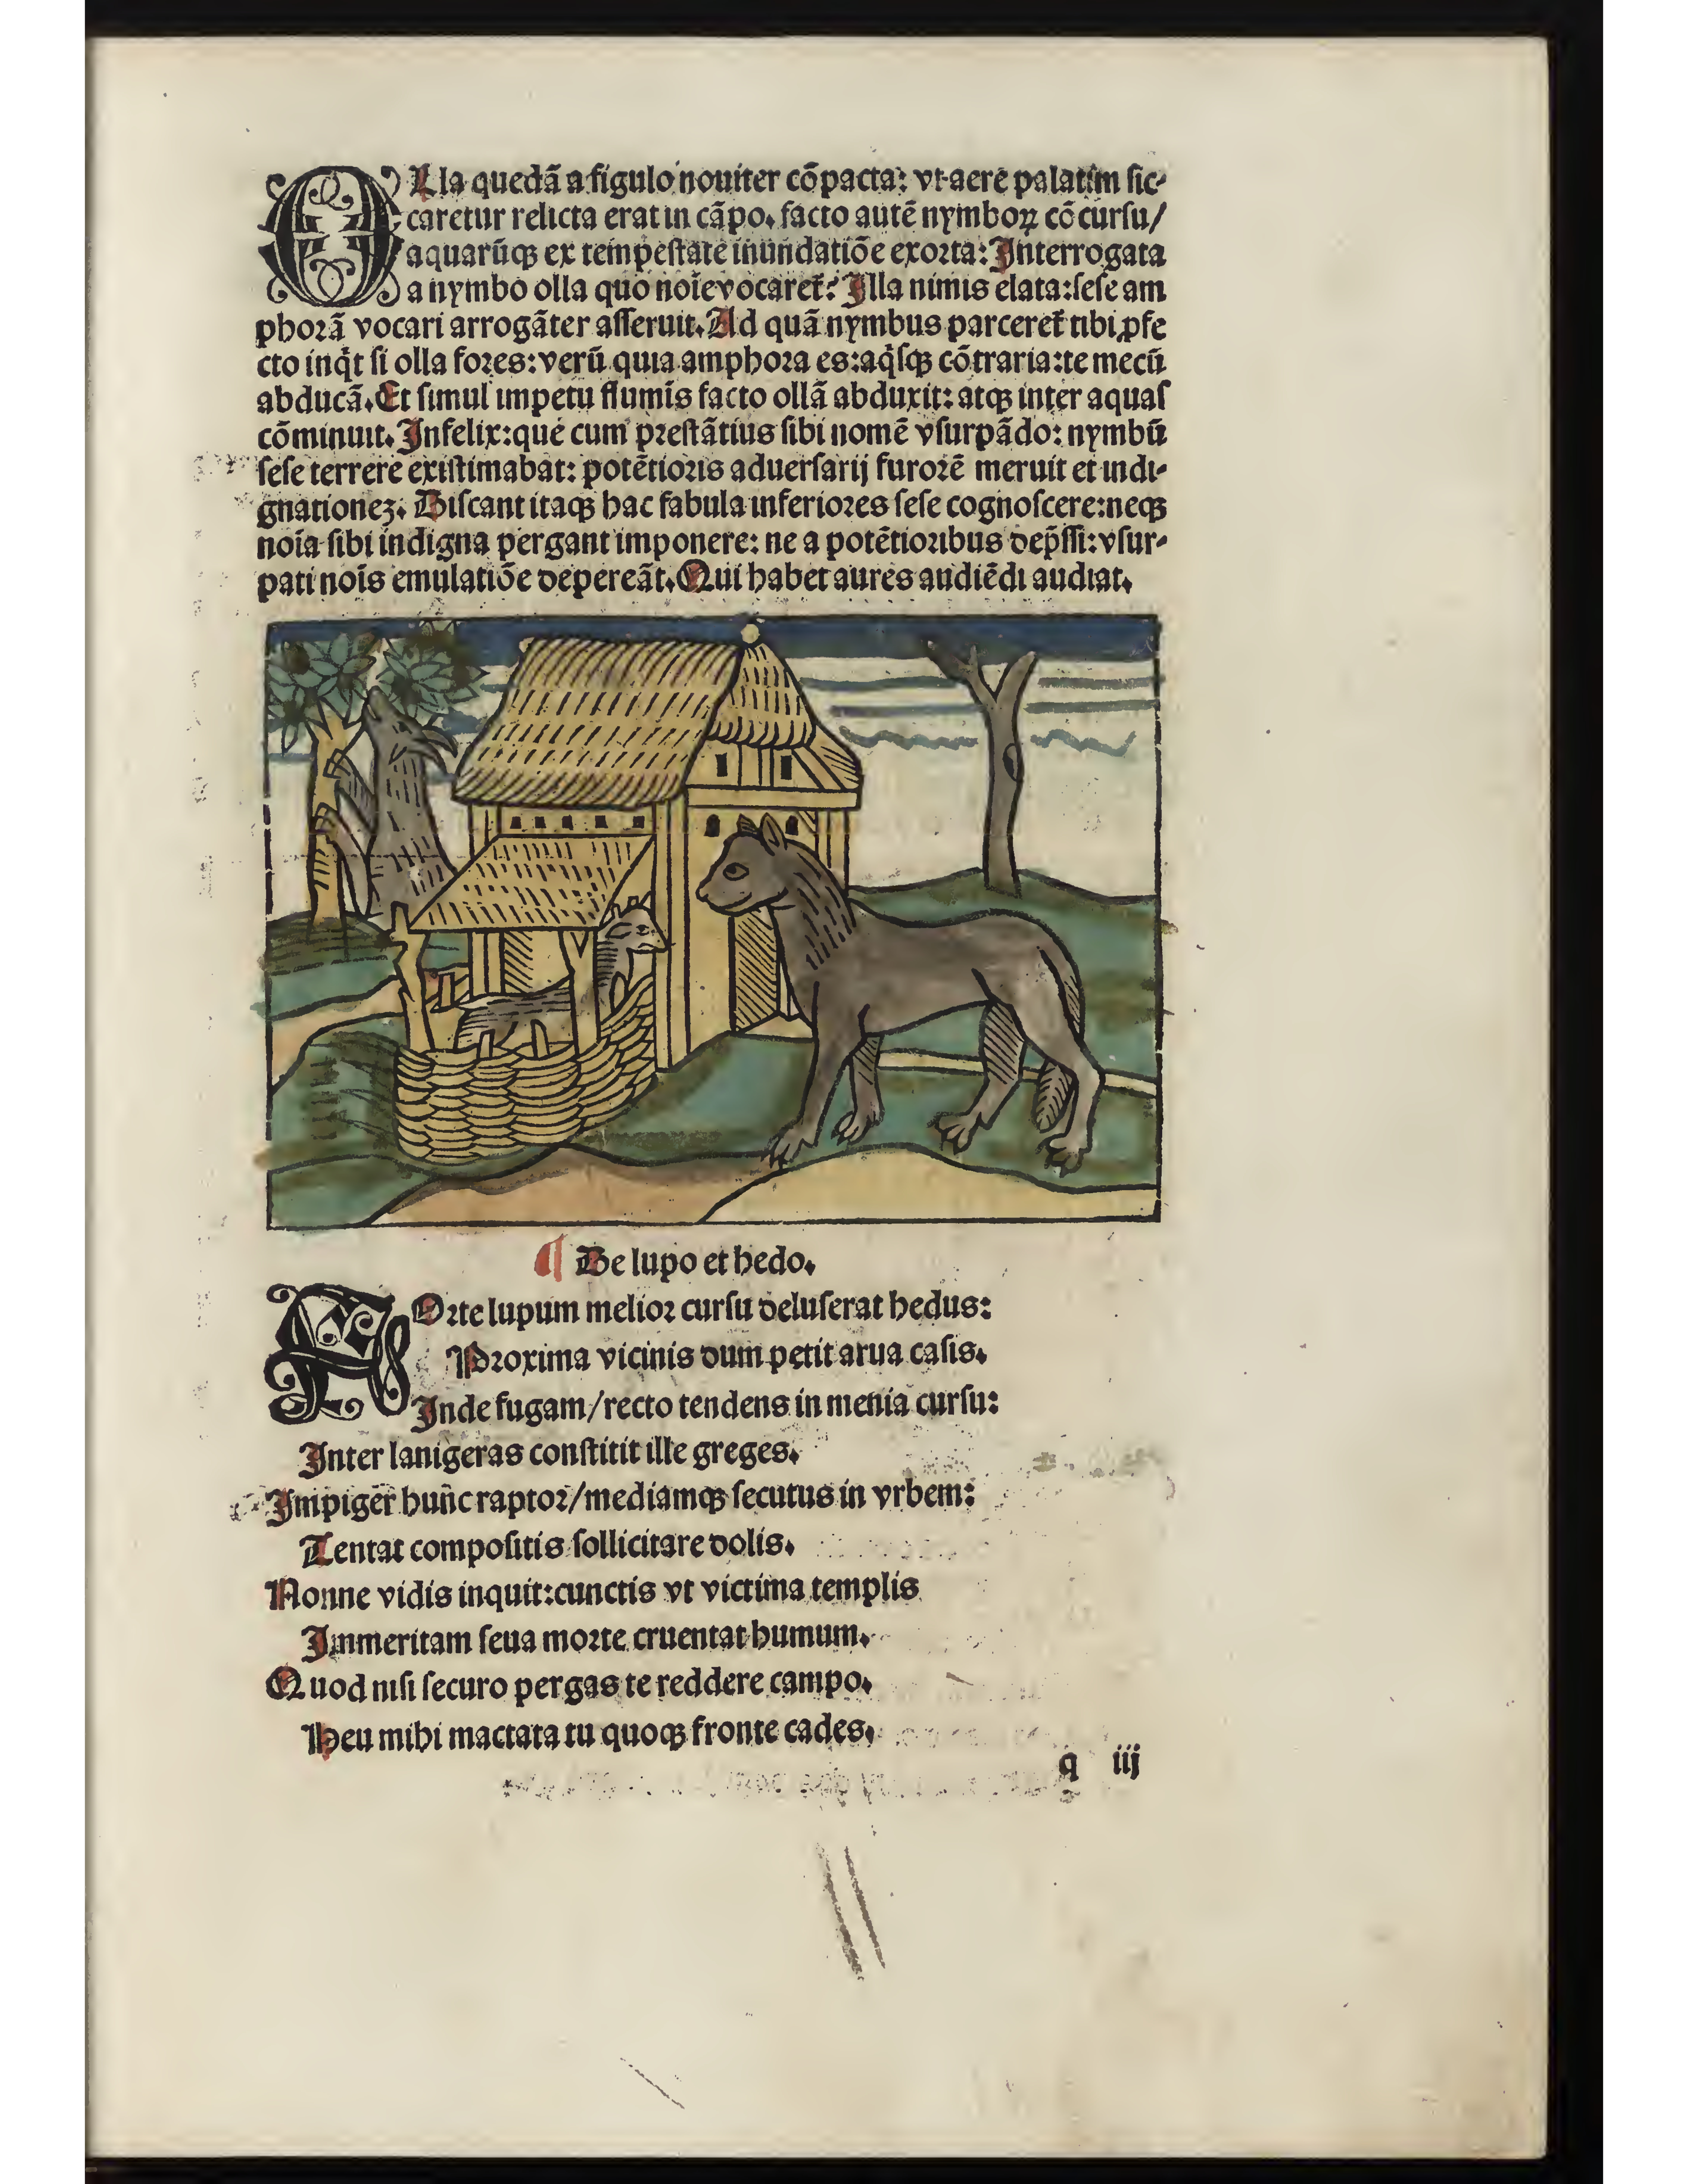 OLla quedã a figulo nouiter cõpacta: vt aere palatim sic⸗
caretur relicta erat in cãpo. facto autẽ nymboꝝ cõcursu/
aquarũqꝫ ex tempestate inundatiõe exorta: Interrogata
a nymbo olla quo noĩe vocaret̃? Illa nimis elata: sese am
phorã vocari arrogãter asseruit. Ad quã nymbus parceret̃ tibi ꝓfe
cto inqt̃ si olla fores: verũ quia amphora es: aq̃sqꝫ cõtraria: te mecũ
abducã. Et simul impetu flumĩs facto ollã abduxit: atqꝫ inter aquas
cõminuit. Infelix: que cum prestãtius sibi nomẽ vsurpãdo: nymbũ
sese terrere existimabat: potẽtioris aduersarij furorẽ meruit et indi⸗
gnationeꝫ. Discant itaqꝫ hac fabula inferiores sese cognoscere: neqꝫ
noĩa sibi indigna pergant imponere: ne a potẽtioribus dep̃ssi: vsur⸗
pati noĩs emulatiõe depereãt. Qui habet aures audiẽdi audiat.
¶ De lupo et hedo.
FOrte lupum melior cursu deluserat hedus:
Proxima vicinis dum petit arua casis.
Inde fugam/recto tendens in menia cursu:
Inter lanigeras constitit ille greges.
Impiger hunc raptor/mediamqꝫ secutus in vrbem:
Tentat compositis sollicitare dolis.
Nonne vidis inquit: cunctis vt victima templis
Immeritam seua morte cruentat humum.
Quod nisi securo pergas te reddere campo.
Heu mihi mactata tu quoqꝫ fronte cades.
q iij